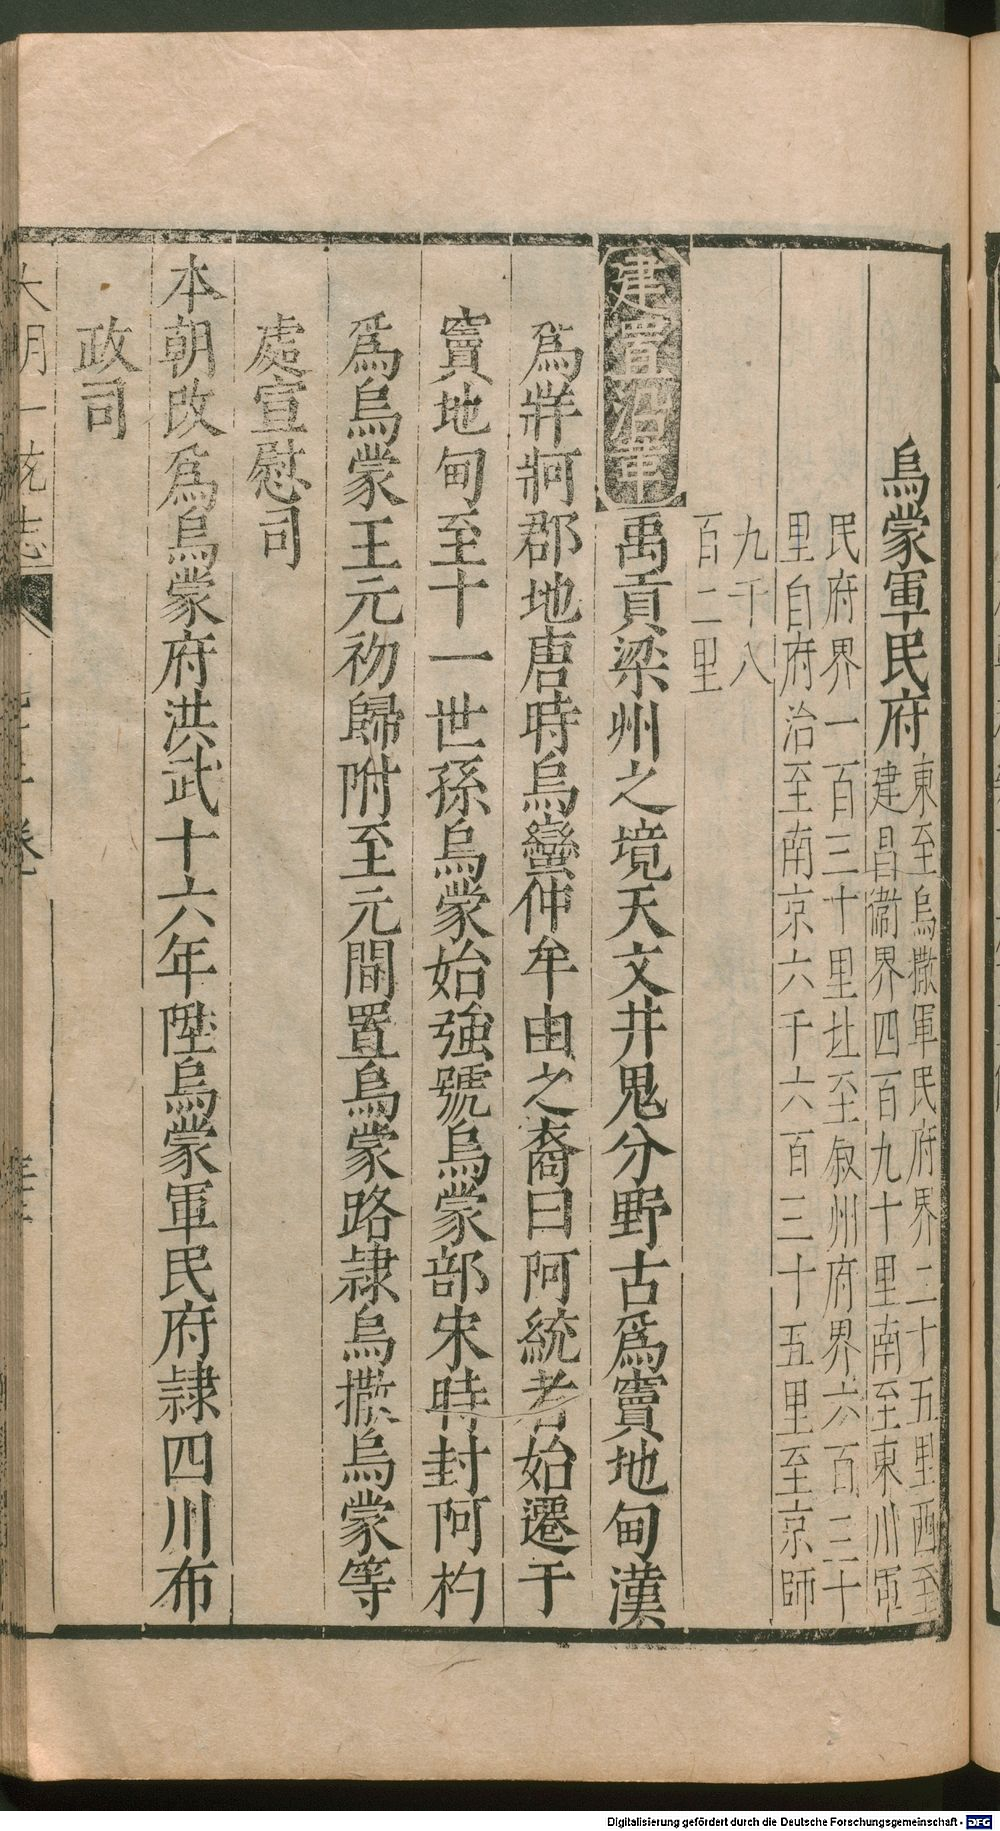 烏蒙軍民府
東至烏撒軍民府界二十五里西至
建昌衛界四百九十里南至東川軍
民府界一百三十里北至叙州府界六百三十
里自府治至南京六千六百三十五里至京師
九千八
百二里
建置沿革
禹貢梁州之境天文井鬼分野古爲竇地甸漢
爲牂牁郡地唐時烏蠻仲牟由之裔曰阿統者始遷于
竇地甸至十一世孫烏蒙始強號烏蒙部宋時封阿杓
爲烏蒙王元初歸附至元間置烏蒙路隷烏撒烏蒙等
處宣慰司
本朝改爲烏蒙府洪武十六年陞烏蒙軍民府隷四川布
政司
大明一統志
Digitalisierung gefördert durch die Deutsche Forschungsgemeinschaft - DFG